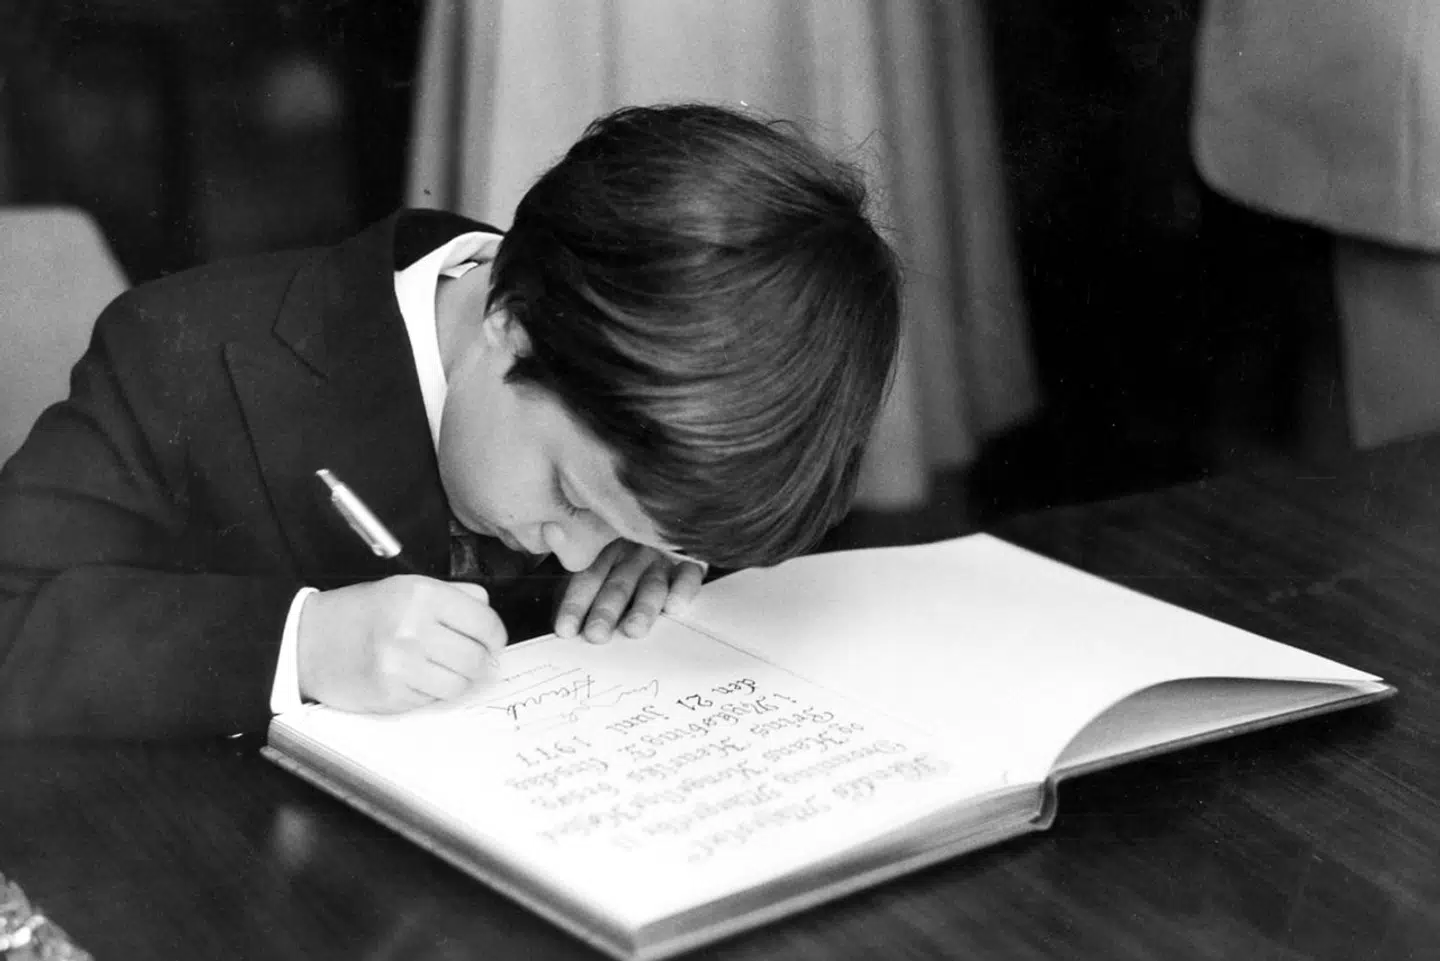 Hendes Majestæt
Dronning Margrethe II
og Hans Kongelige Højhed
Prins Henriks besøg
i Nykøbing F. tirsdag
den 21 juni 1977
Henrik